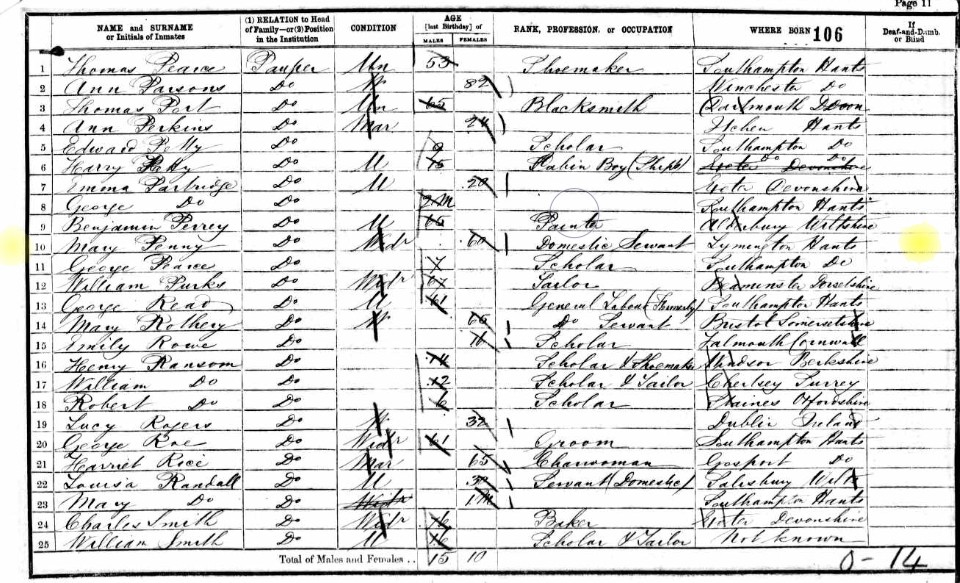 Page 11
NAME and SURNAME or Initials of Inmates (1) RELATION to Head of Family—or (2) Position in the Institution CONDITION AGE [last Birthday] of MALES FEMALES RANK, PROFESSION, or OCCUPATION WHERE BORN 106 If Deaf-and-Dumb or Blind
1 Thomas Pearce Pauper Un 53 Shoemaker Southampton Hants
2 Ann Parsons Do 82 Winchester Do
3 Thomas Port Do Un 65 Blacksmith Dartmouth Devon
4 Ann Perkins Do Mar 24 Itchen Hants
5 Edward Petty Do 9 Scholar Southampton Do
6 Harry Petty Do U 15 Cabin Boy (Ships) Do Do
7 Emma Partridge Do U 20 Exeter Devonshire
8 George Do Do Southampton Hants
9 Benjamin Perrey Do U 65 Painter Wiltshire
10 Mary Penny Do Widr 60 Domestic Servant Lymington Hants
11 George Pearce Do Scholar Southampton Do
12 William Purks Do Widr Tailor Beaminster Dorsetshire
13 George Read Do U 61 General Labour (Formerly) Southampton Hants
14 Mary Rothery Do 66 Do Servant Bristol Somersetshire
15 Emily Rowe Do Scholar Falmouth Cornwall
16 Henry Ransom Do 14 Scholar & Shoemaker Windsor Berkshire
17 William Do Do 12 Scholar & Tailor Chertsey Surrey
18 Robert Do Do 6 Scholar Staines Oxfordshire
19 Lucy Rogers Do 32 Dublin Ireland
20 George Roe Do Widr 61 Groom Southampton Hants
21 Harriet Rice Do Mar 65 Charwoman Gosport Do
22 Louisa Randall Do U 30 Servant (Domestic) Salisbury Wilts
23 Mary Do Do 1 M Southampton Hants
24 Charles Smith Do Widr Baker Exeter Devonshire
25 William Smith Do U 16 Scholar & Tailor Not known
Total of Males and Females .. 15 10
0-14